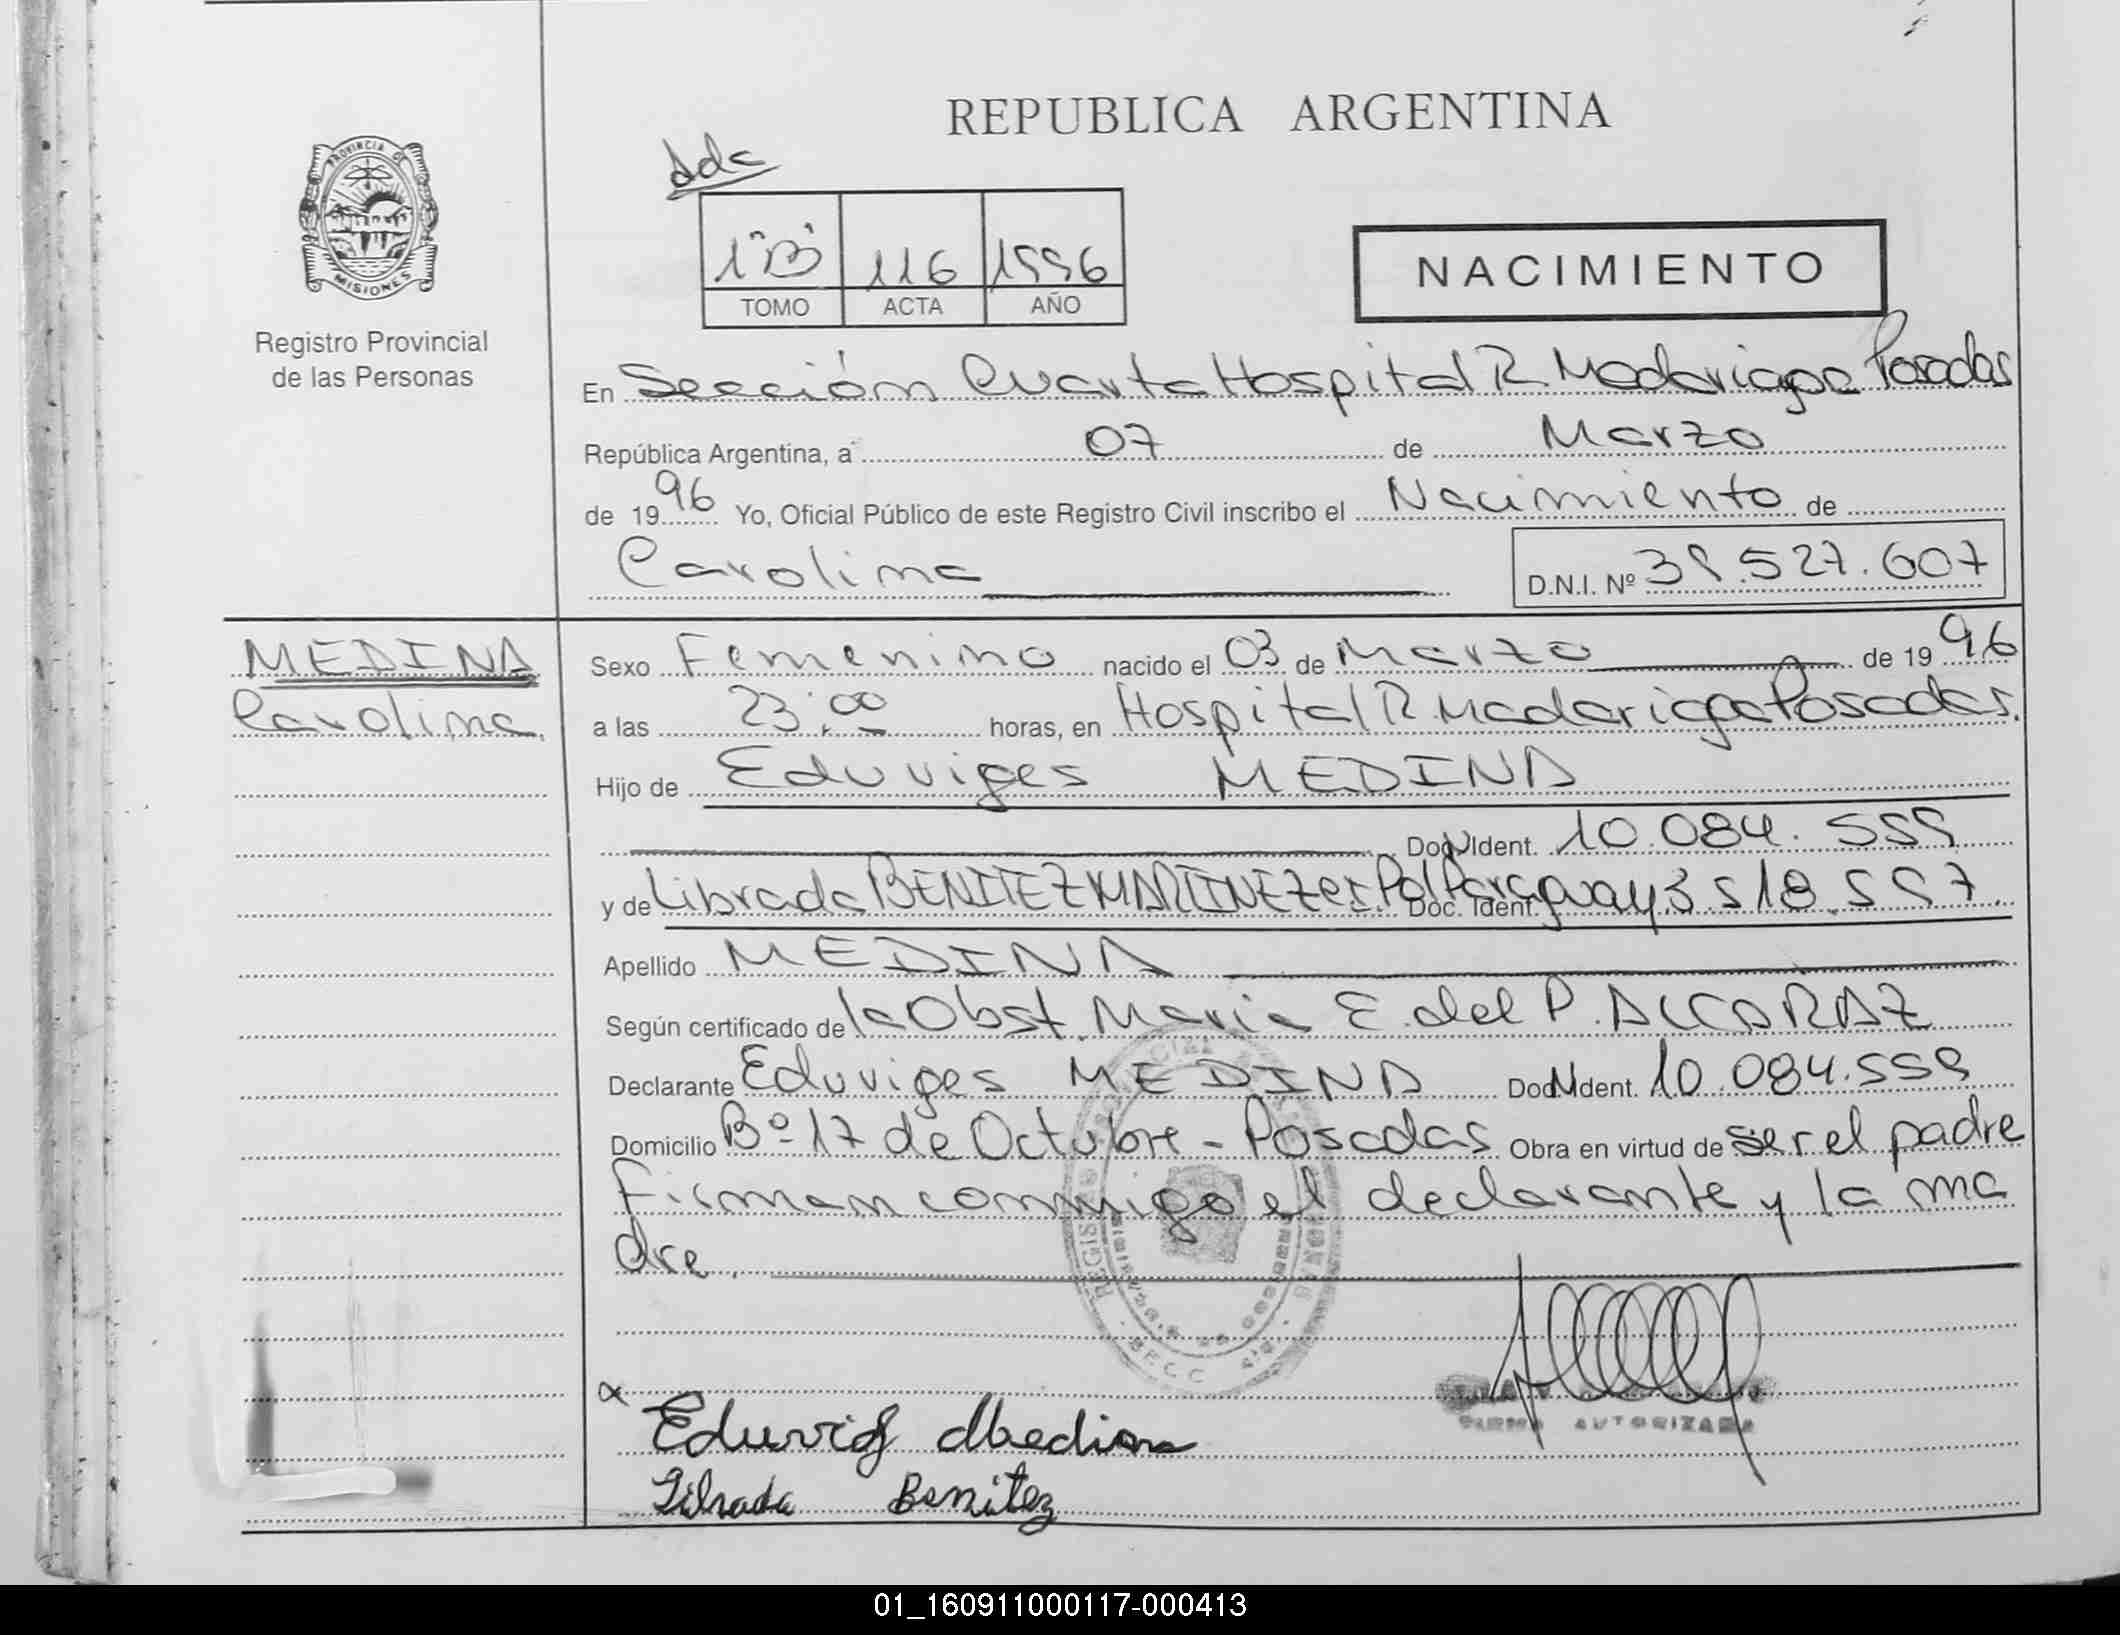 REPUBLICA ARGENTINA
PROVINCIA DE
MISIONES
Registro Provincial
de las Personas
1"B" 116 1996
TOMO ACTA AÑO
NACIMIENTO
En Sección Cuarta Hospital R. Madariaga Posadas
República Argentina, a 07 de Marzo
de 1996 Yo, Oficial Público de este Registro Civil inscribo el Nacimiento de
Carolina D.N.I. Nº 39.527.607
MEDINA
Carolina.
Sexo Femenino nacido el 03 de Marzo de 1996
a las 23:00 horas, en Hospital R. Madariaga Posadas.
Hijo de Eduviges MEDINA
Doc. Ident. 10.084.559
y de Librada BENITEZ MARTINEZ Pol Paraguay Doc. Ident. 3 918.597.
Apellido MEDINA
Según certificado de la Obst. Maria E. del P. ALCARAZ
Declarante Eduviges MEDINA Doc. Ident. 10.084.559
Domicilio Bº 17 de Octubre - Posadas Obra en virtud de ser el padre
firman conmigo el declarante y la ma
dre.
Eduvig Medina
AUTORIZADA
Librada Benitez
01_160911000117-000413